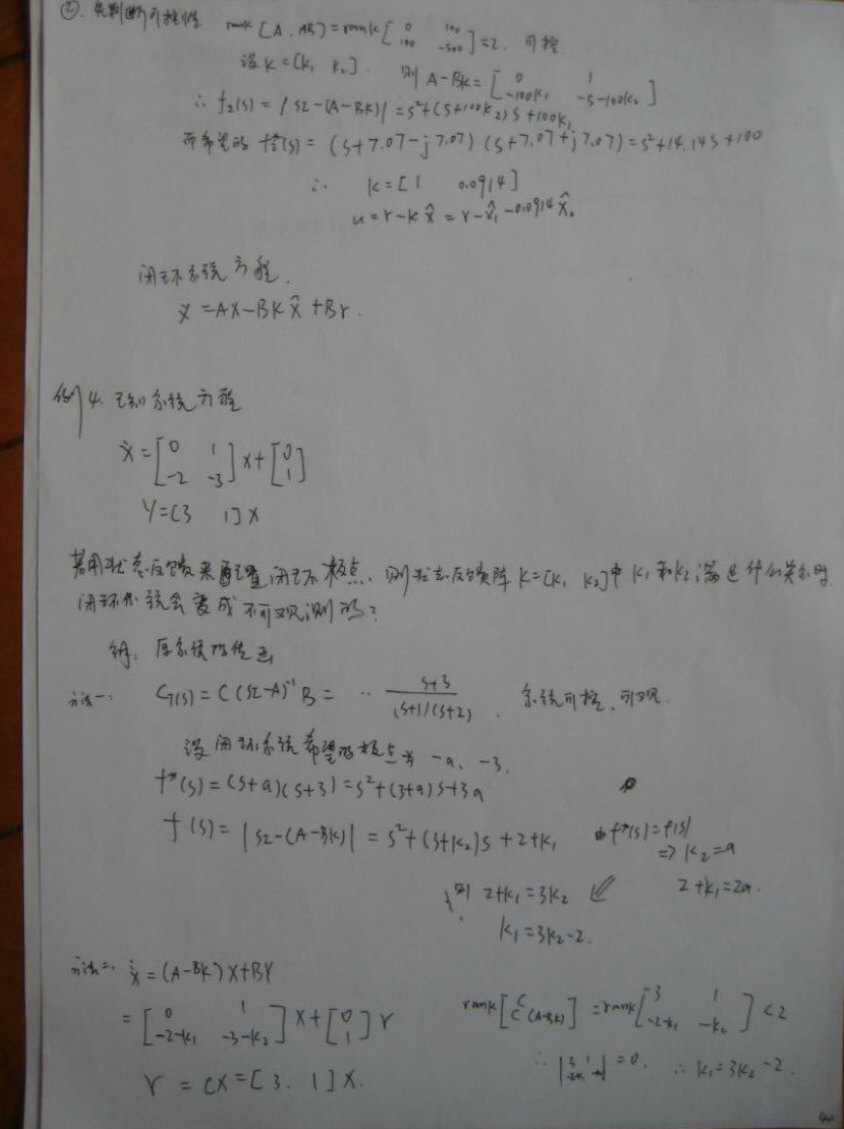 ②. 先判断可控性 rank[A. AB]=rank[0 100
100 -500]=2. 可控
设K=[k₁ k₂]. 则 A-BK=[0 1
-100k₁ -5-100k₂]
∴ f₂(s)=|sI-(A-BK)|=s²+(5+100k₂)s+100k₁
而希望的 f₂*(s)=(s+7.07-j7.07)(s+7.07+j7.07)=s²+14.14s+100
∴ K=[1 0.0914]
u=r-kx̂=r-x̂₁-0.0914x̂₂
闭环系统方程.
ẋ=AX-BKx̂+Br.
例4. 已知系统方程
ẋ=[0 1
-2 -3]x+[0
1]
Y=[3 1]X
若用状态反馈来配置闭环极点、则状态反馈阵K=[k₁ k₂]中k₁和k₂满足什么关系时
闭环系统会变成不可观测的?
解、原系统的传函
方法一: G(s)=C(sI-A)⁻¹B= ·· s+3
(s+1)(s+2) . 系统可控、可观.
设闭环系统希望的极点为 -a、-3.
f*(s)=(s+a)(s+3)=s²+(3+a)s+3a
f(s)=|sI-(A-BK)|=s²+(3+k₂)s+2+k₁ 由f*(s)=f(s)
⇒k₂=a
则 2+k₁=3k₂ 2+k₁=2a.
k₁=3k₂-2.
方法二: ẋ=(A-BK)X+BY
=[0 1
-2-k₁ -3-k₂]X+[0
1]r rank[C
C(A-BK)]=rank[3 1
-2-k₁ -k₂]<2
Y=CX=[3. 1]X. ∴ | |=0. ∴ k₁=3k₂-2.
40